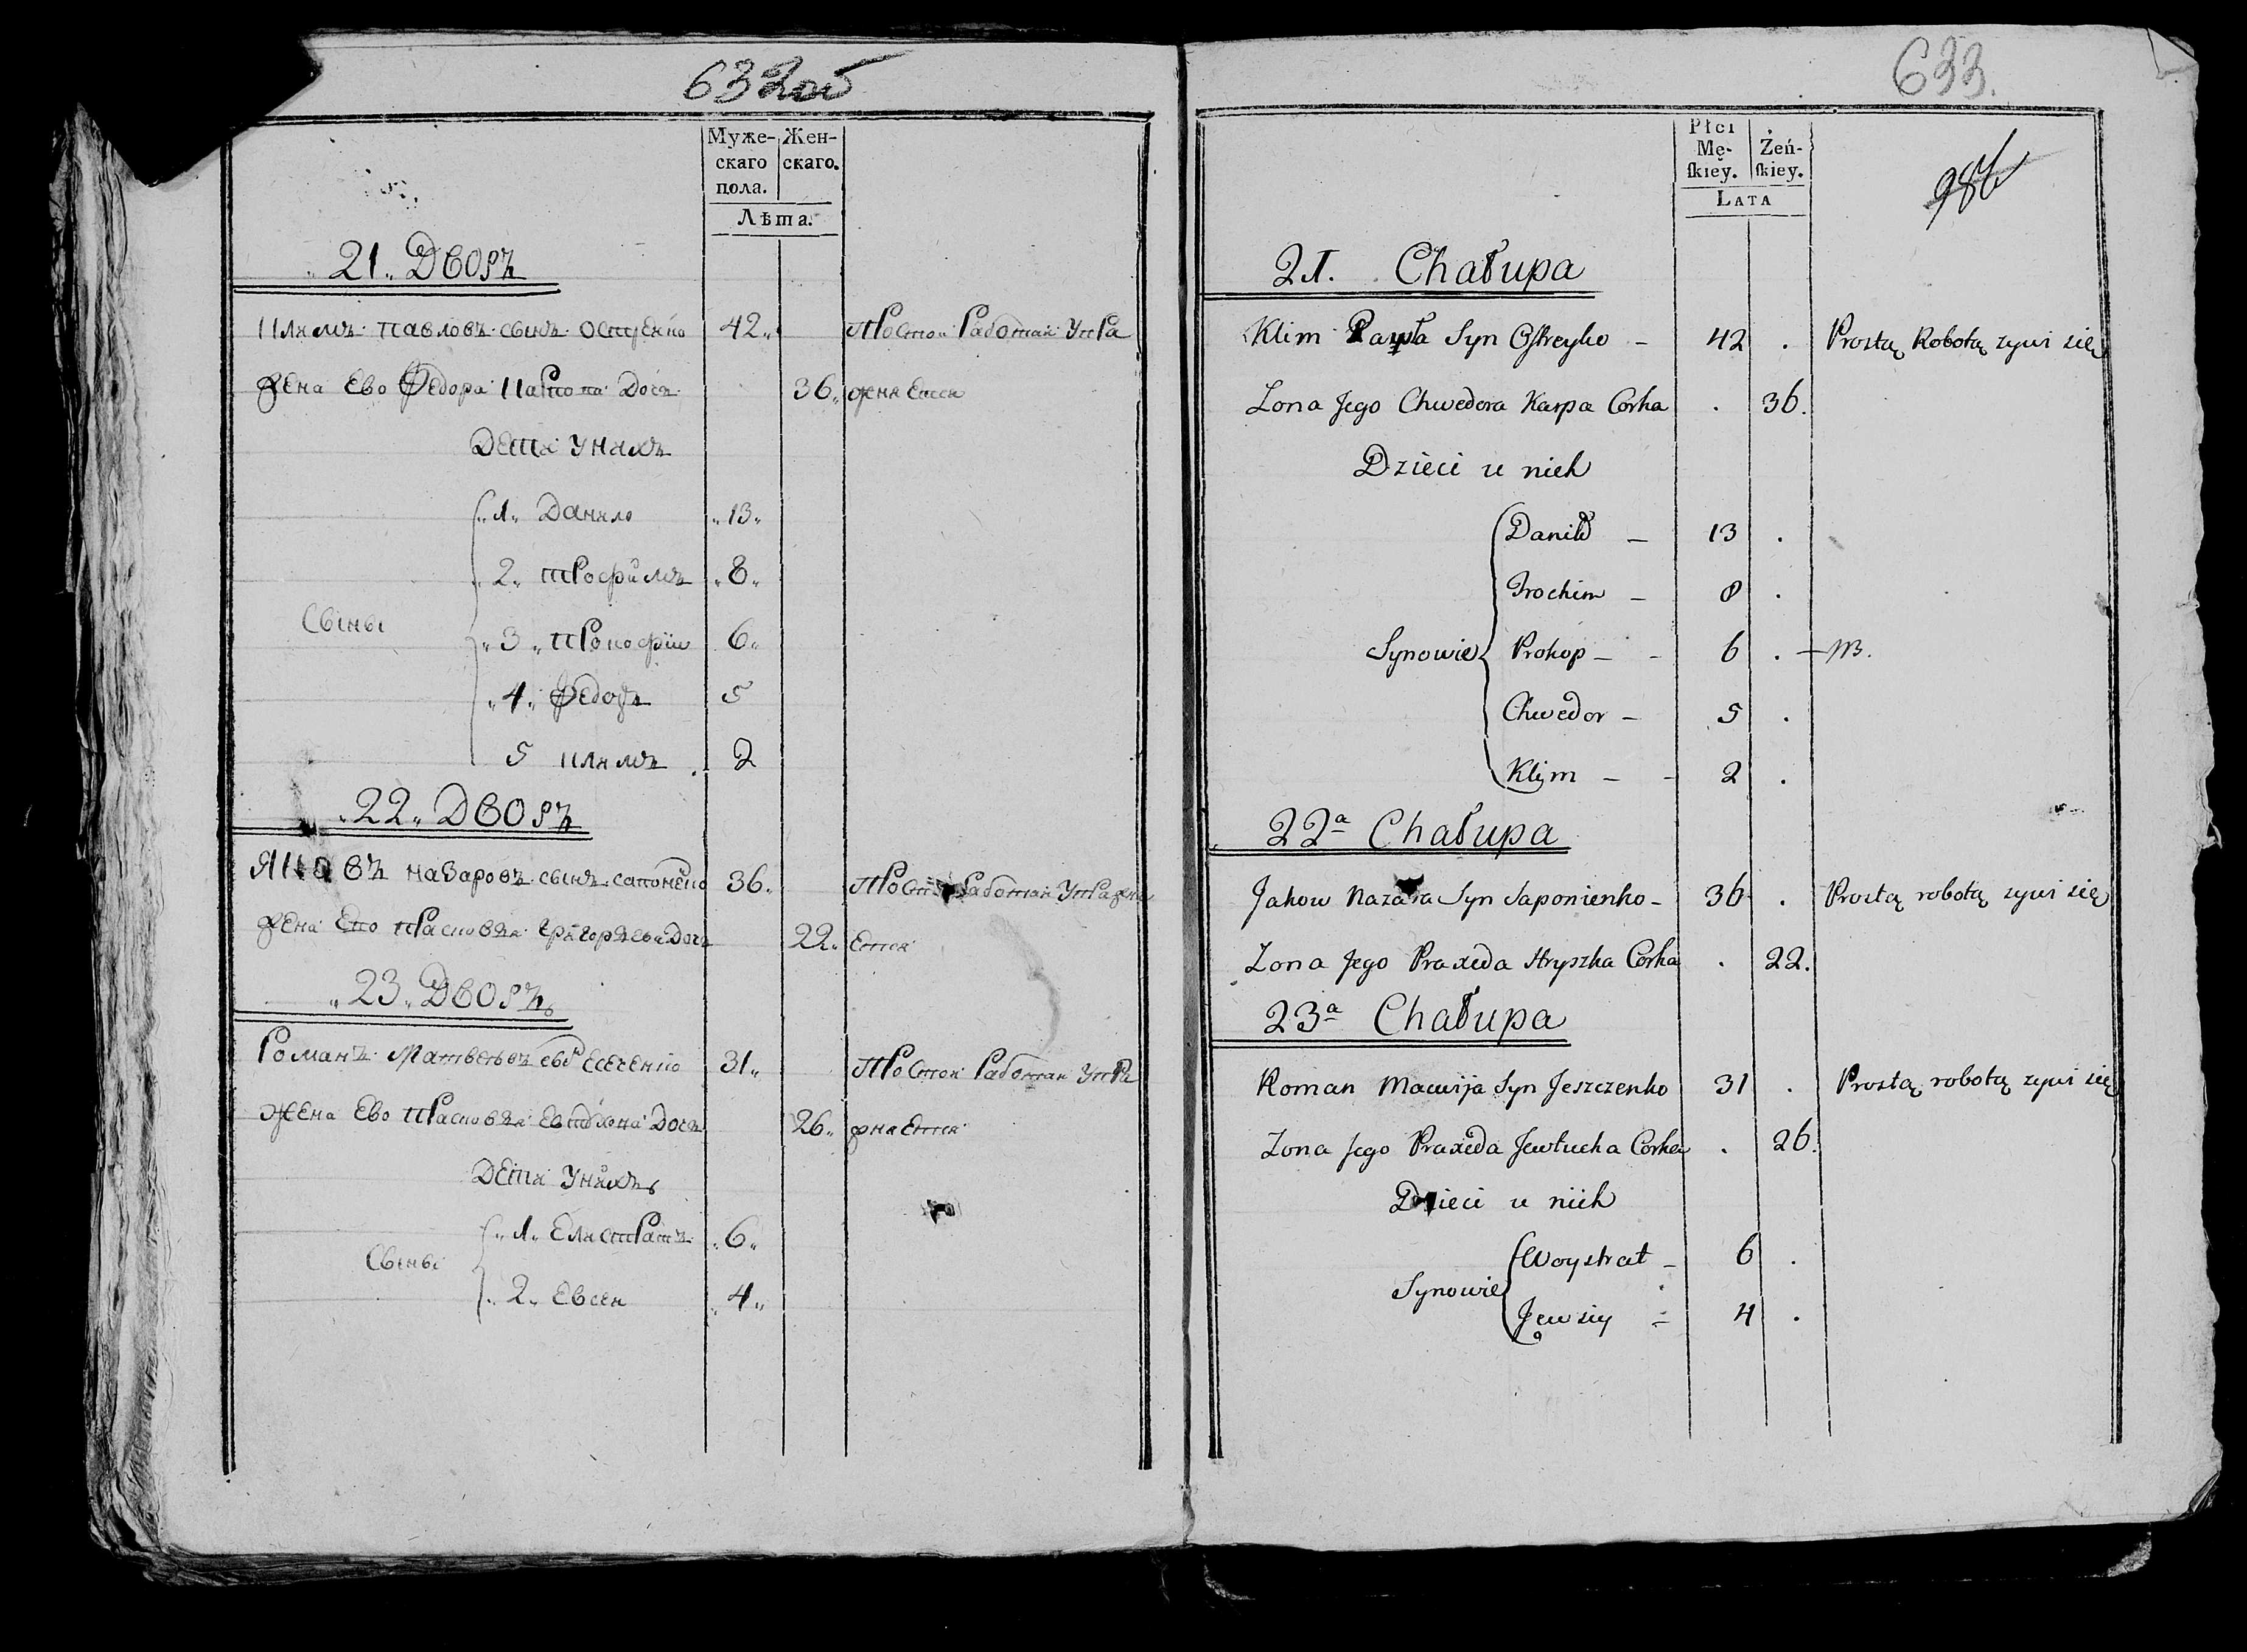 632об
Муже-
скаго
пола.
Жен-
скаго.
Лѣта.
21. Дворъ
Климъ Павловъ сынъ Остреико 42 Простои Работаи Упра
Жена Ево Федора Карпова Доч 36 жняется
Дети У нихъ
Сыны
1 Данило 13
2 Трофимъ 8
3 Прокофіи 6
4 Федоръ 5
5 Климъ 2
22 Дворъ
Яковъ Назаровъ сынъ Сапонено 36 Простои Работаи Упражня
Жена Ево Прасковія Григорьева Доч 22 Ется
23 Дворъ
Романъ Матвеевъ Есеченко 31 Простои Работаи Упра
Жена Ево Прасковія Евтухова Доч 26 жняется
Дети У нихъ
Сыны
1 Елистратъ 6
2 Евсеи 4
633.
986
Płci
Mę-
ſkiey.
Żeń-
ſkiey.
LATA
21. Chałupa
Klim Pawła Syn Ostreyko - 42 . Prostą Robotą zywi się
Zona Jego Chwedora Karpa Corka . 36.
Dzieci u nich
Synowie
Daniło - 13 .
Trochim - 8 .
Prokop - - 6 .
Chwedor - 5 .
Klim - - 2 .
22a Chałupa
Jakow Nazara Syn Saponienko - 36 . Prostą robotą zywi się
Zona Jego Praxeda Hryszka Corka . 22.
23a Chałupa
Roman Mawija Syn Jeszczenko 31 . Prostą robotą zywi się
Zona Jego Praxeda Jewtucha Corka . 26.
Dzieci u nich
Synowie
Woystrat - 6 .
Jewsiy - 4 .